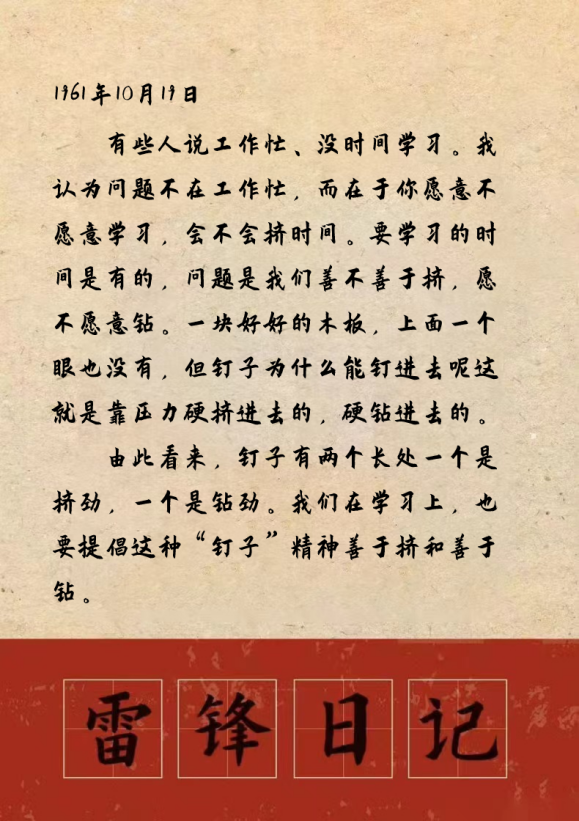 1961年10月19日
有些人说工作忙、没时间学习。我
认为问题不在工作忙，而在于你愿意不
愿意学习，会不会挤时间。要学习的时
间是有的，问题是我们善不善于挤，愿
不愿意钻。一块好好的木板，上面一个
眼也没有，但钉子为什么能钉进去呢这
就是靠压力硬挤进去的，硬钻进去的。
由此看来，钉子有两个长处一个是
挤劲，一个是钻劲。我们在学习上，也
要提倡这种“钉子”精神善于挤和善于
钻。
雷锋日记